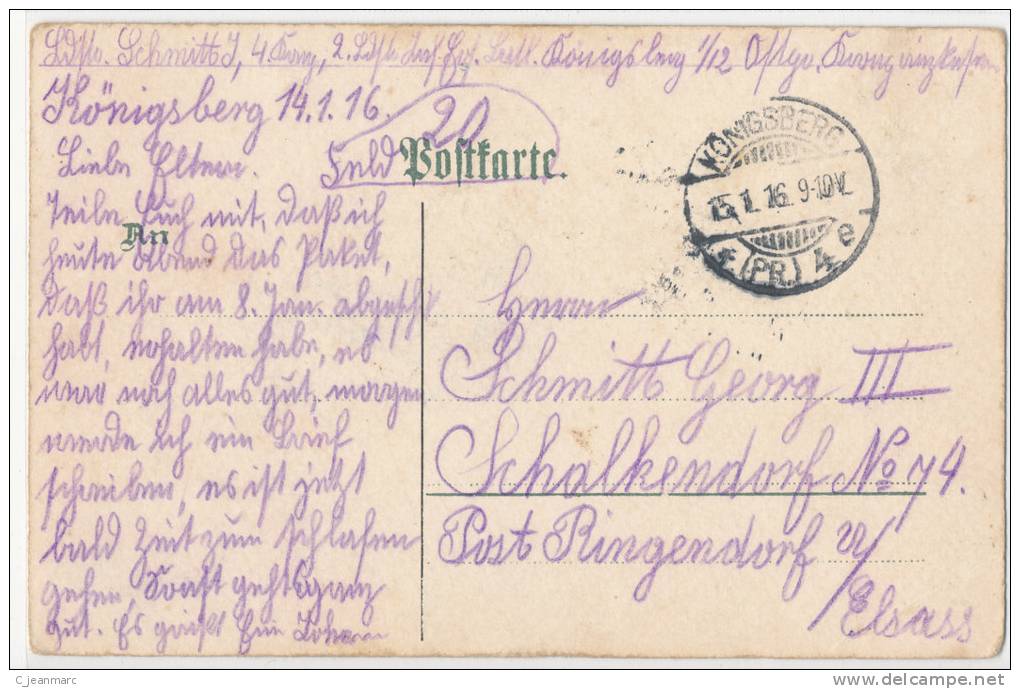 Ldstm. Schmitt J, 4 Komp, 2. Ldst. Inf. Königsberg 1/12 Ostpr.
Königsberg 14.1.16.
20
Liebe Eltern.
Feld Postkarte.
Teile Euch mit, daß ich
An
heute Abend das Paket,
daß ihr am 8. Jan. abgeschi
habt, erhalten habe, es
war noch alles gut, morgen
werde ich ein Brief
schreiben, es ist jetzt
bald Zeit zum schlafen
gehen, Sonst gehts ganz
gut. Es grüßt Euer Sohn
KÖNIGSBERG
15.1.16. 9-10V.
(PR.) 4 e
Herrn
Schmitt Georg III
Schalkendorf No 74.
Post Ringendorf
Elsass
C jeanmarc
delcampe.net